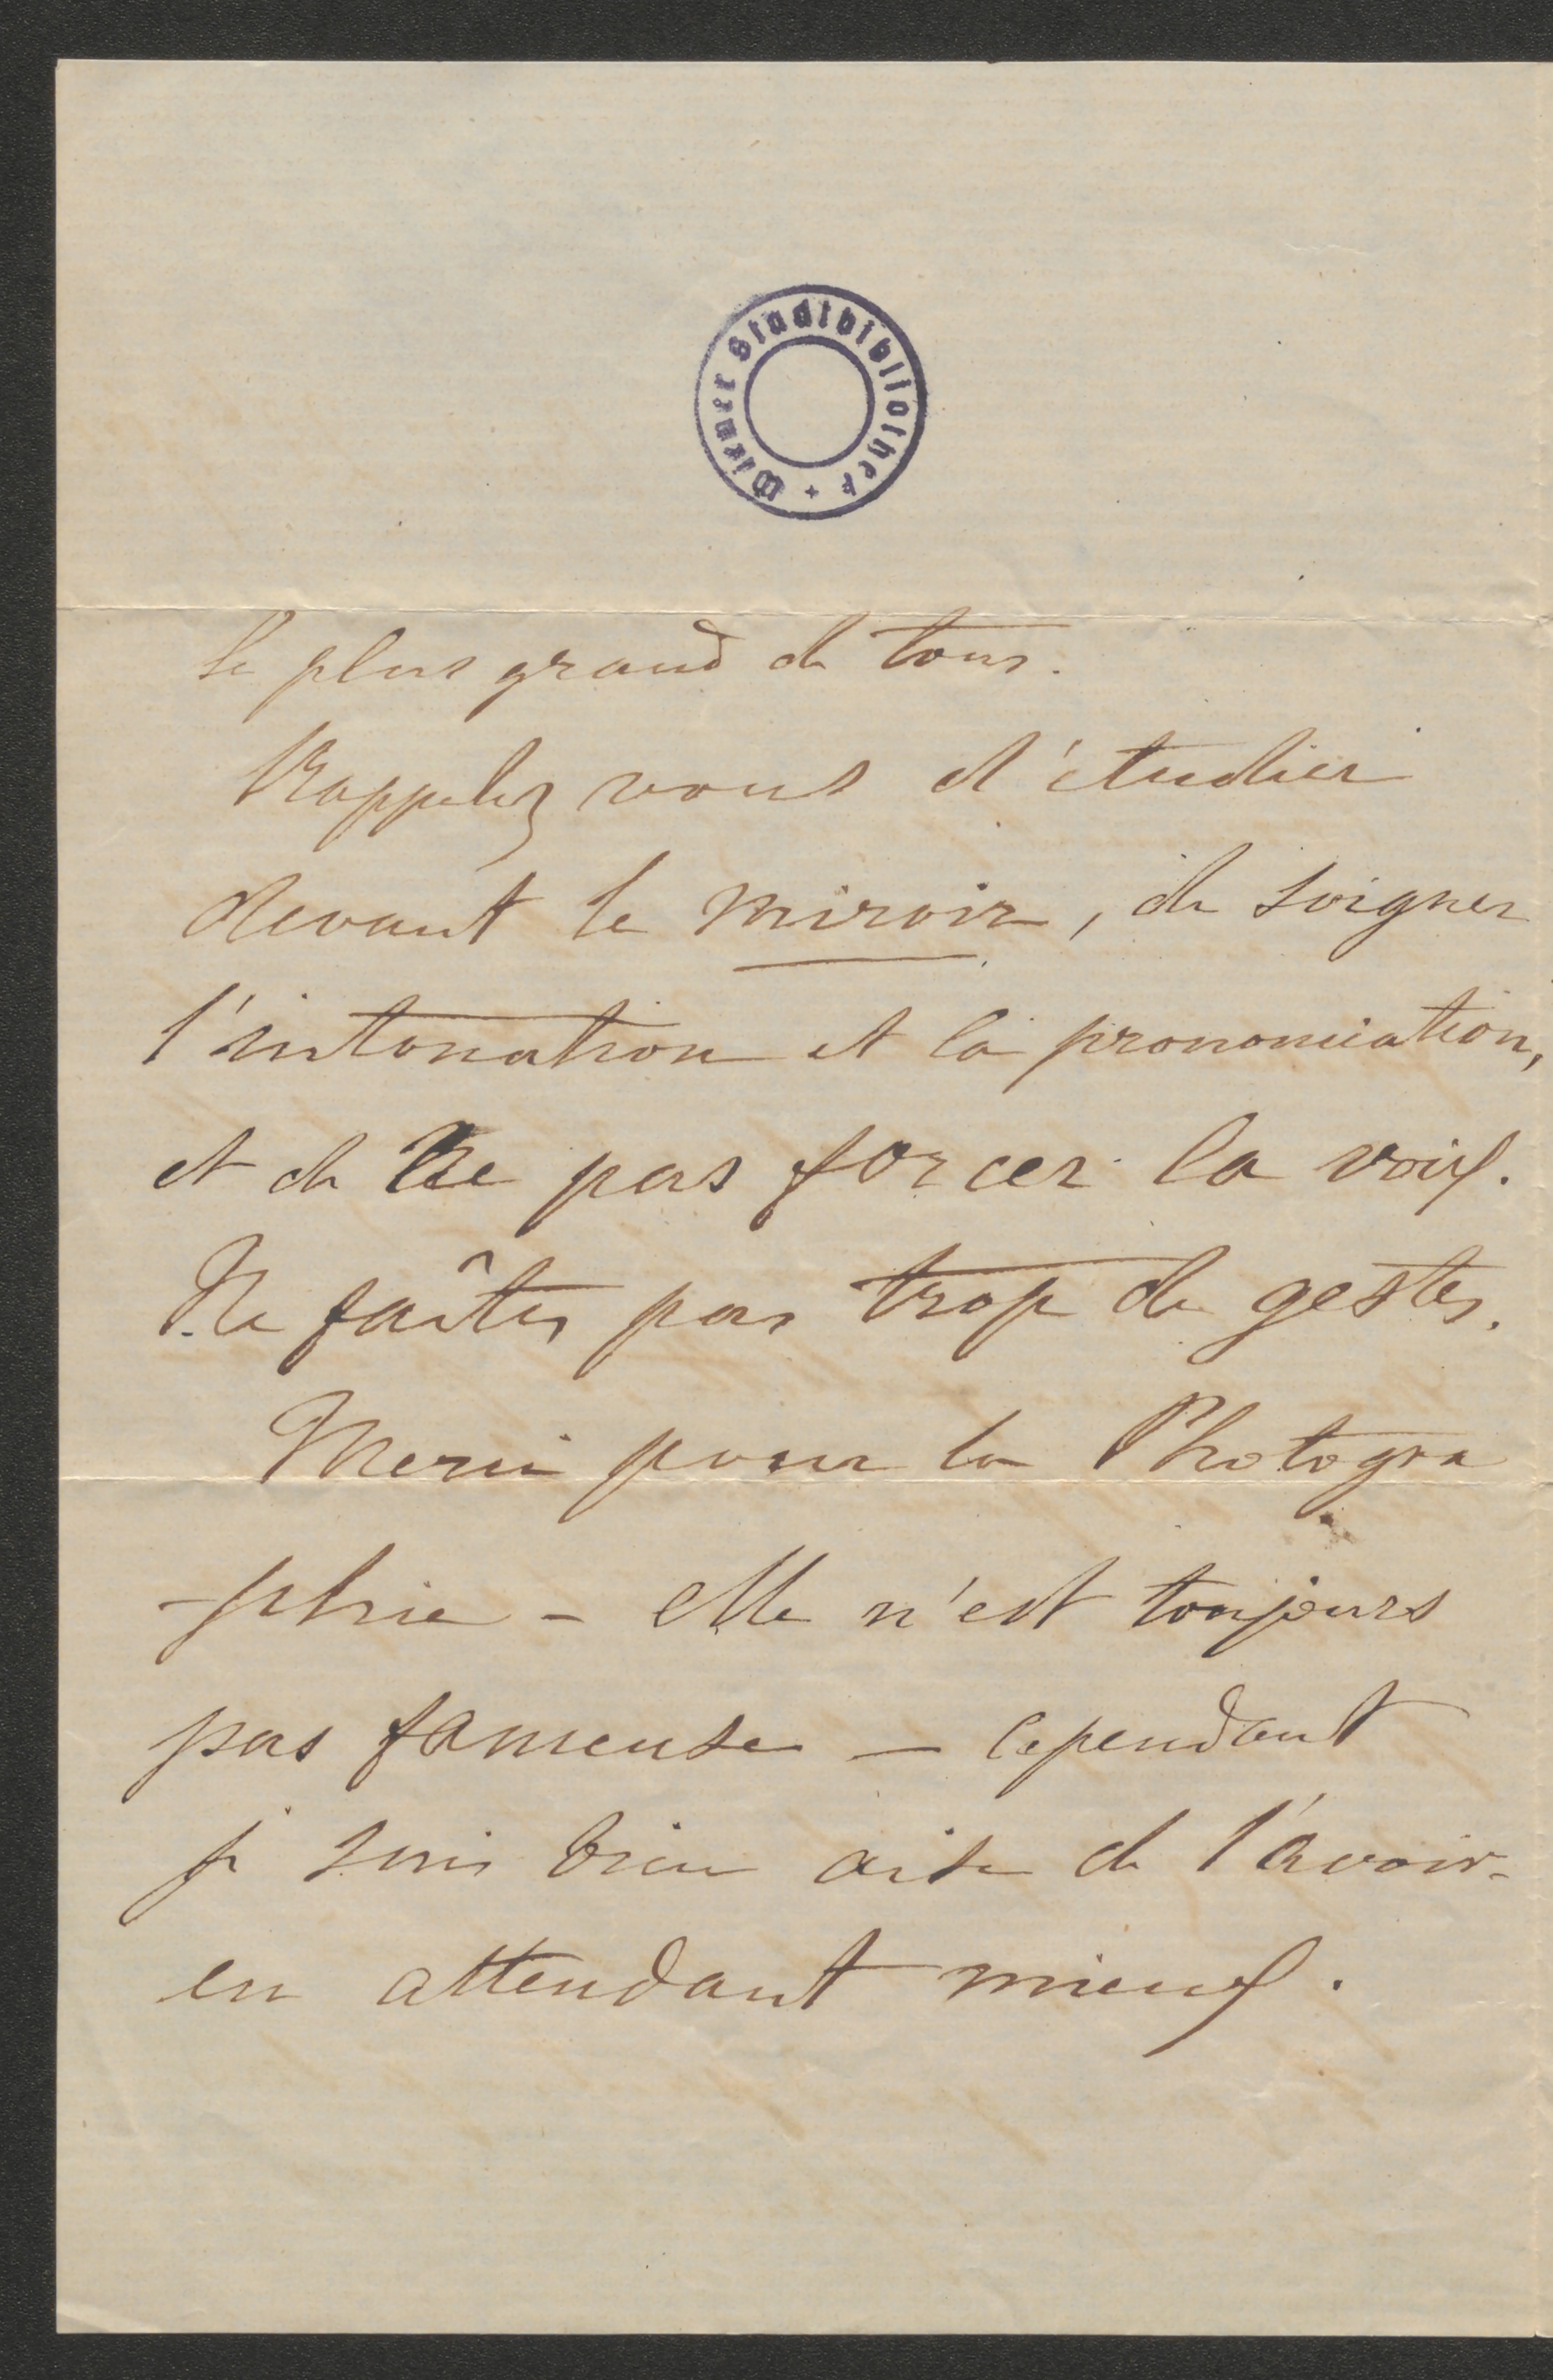 Wiener Stadtbibliothek +
le plus grand de tous.
Rappelez vous d'étudier
devant le miroir, de soigner
l'intonation et la prononciation,
et de ne pas forcer la voix.
Ne faîtes pas trop de gestes.
Merci pour la Photogra
-phie - elle n'est toujours
pas fameuse — cependant
je suis bien aise de l'avoir -
en attendant mieux.